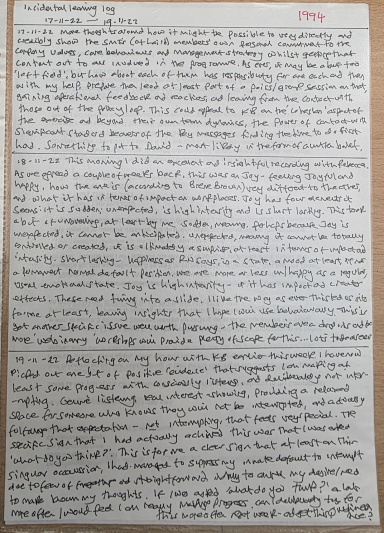 Incidental learning log
17-11-22 19-11-22
1994
17-11-22 More thoughts around how it might be possible to very directly and
credibly show the SMT's (at least) members' own personal commitment to the
company values, core behaviours and management strategy whilst getting that
content out to all involved in the programme. As ever, it may be a bit too
'left field', but how about each of them has responsibility for one each and then
with my help, prepare then lead at least part of a pairs/group session on that,
gaining additional feedback and coaching, and learning from the contact with
those out of the policy loop. This could appeal to KB on the cohesion aspect of
the exercise and beyond their own team dynamics, the power of contact with
significant standard bearers of the key messages finding the time to do it first
hand. Something to put to David - most likely in the form of a written note.
18-11-22 This morning I did an excellent and insightful recording with Rebecca.
As we agreed a couple of weeks back, this was on Joy - feeling Joyful and
happy, how the one is (according to Brene Brown) very different to the other,
and what it has in terms of impact on workplaces. Joy has four elements it
seems: it is sudden, unexpected, is high intensity and is short lasting. This took
a bit of unpacking, at least by me. Sudden, meaning, perhaps because Joy is
unexpected, it cannot be anticipated. Unexpected, meaning it cannot be totally
controlled or created, it is ultimately a surprise, at least in terms of impact and
intensity. Short lasting - happiness as RW says, is a state, a mood at least, if not
a permanent normal default position. We are more or less un/happy as a regular,
usual emotional state. Joy is high intensity - it has impact and creates
effects. These need turning into a slide. I like the way as ever this takes us into
forms at least, leaving insights that I hope I will use behaviourally. This is
yet another specific issue well worth pursuing - the members' even drop ins and the
more webinary workshops will provide plenty of scope for this... lots to discover
19-11-22 Reflecting on my hour with KB earlier this week I have now
picked out one bit of positive 'evidence' that suggests I am making at
least some progress with consciously listening, and deliberately not inter-
rupting. Genuine listening, real interest showing, providing a relaxed
space for someone who knows they will not be interrupted, and actually
fulfilling that expectation - not interrupting, that feels very special. The
specific sign that I had actually achieved this was that I was asked
'what do you think?'. This is for me a clear sign that at least on this
singular occasion, I had managed to suppress my innate default to interrupt
due to fear of forgetting and straightforward inability to curb my desire/need
to make known my thoughts. If I was asked 'what do you think?' a lot
more often I would feel I am really making progress. I can deliberately try for
this more often next week - adopt this